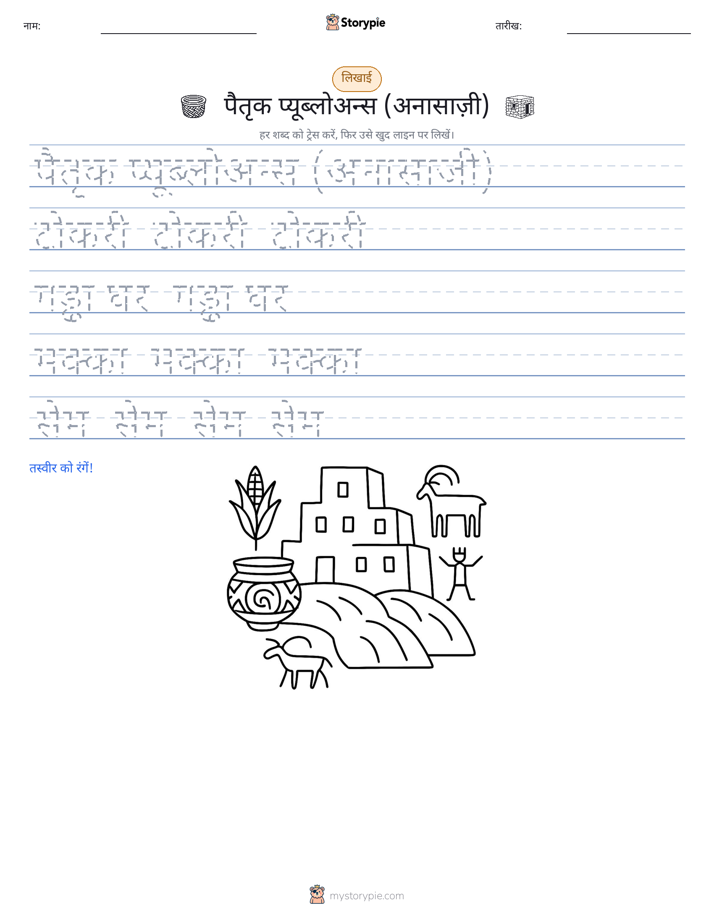 नाम:
Storypie
तारीख:
लिखाई
पैतृक प्यूब्लोअन्स (अनासाज़ी)
हर शब्द को ट्रेस करें, फिर उसे खुद लाइन पर लिखें।
पैतृक प्यूब्लोअन्स (अनासाज़ी)
टोकरी टोकरी टोकरी
गड्ढा घर गड्ढा घर
मक्का मक्का मक्का
सेम सेम सेम सेम
तस्वीर को रंगें!
mystorypie.com